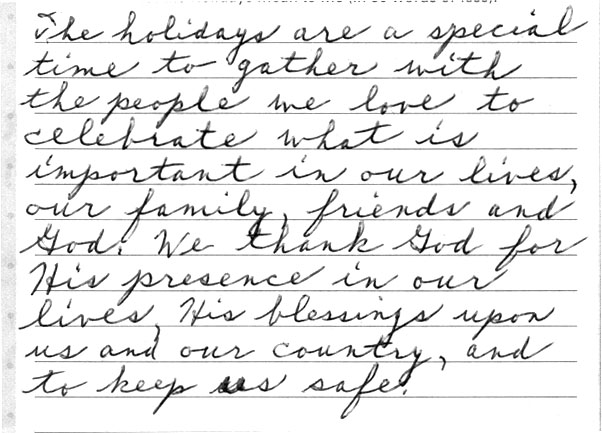 The holidays are a special
time to gather with
the people we love to
celebrate what is
important in our lives,
our family, friends and
God. We thank God for
His presence in our
lives, His blessings upon
us and our country, and
to keep us safe.